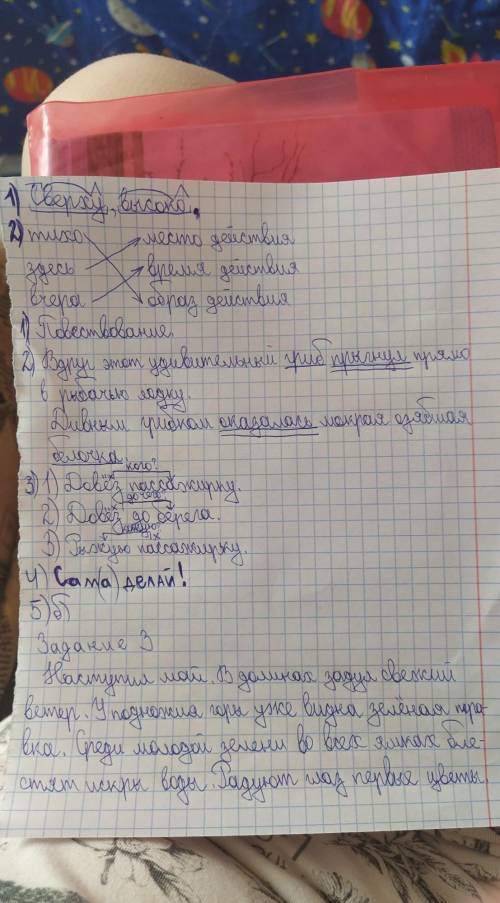 1) Сверху, высоко.
2) тихо место действия
здесь время действия
вчера образ действия
1) Повествование.
2) Вдруг этот удивительный гриб прыгнул прямо
в рыбачью лодку.
Дивным грибком оказалась мокрая озябшая
белочка.
кого?
3) 1) Довёз пассажирку.
до чего?
2) Довёз до берега.
какую?
3) Рыжую пассажирку.
4) Сам(а) делай!
5) б
Задание 3
Наступил май. В долинах задул свежий
ветер. У подножия горы уже видна зелёная тра-
вка. Среди молодой зелени во всех ямках бле-
стят искры воды. Радуют глаз первые цветы.